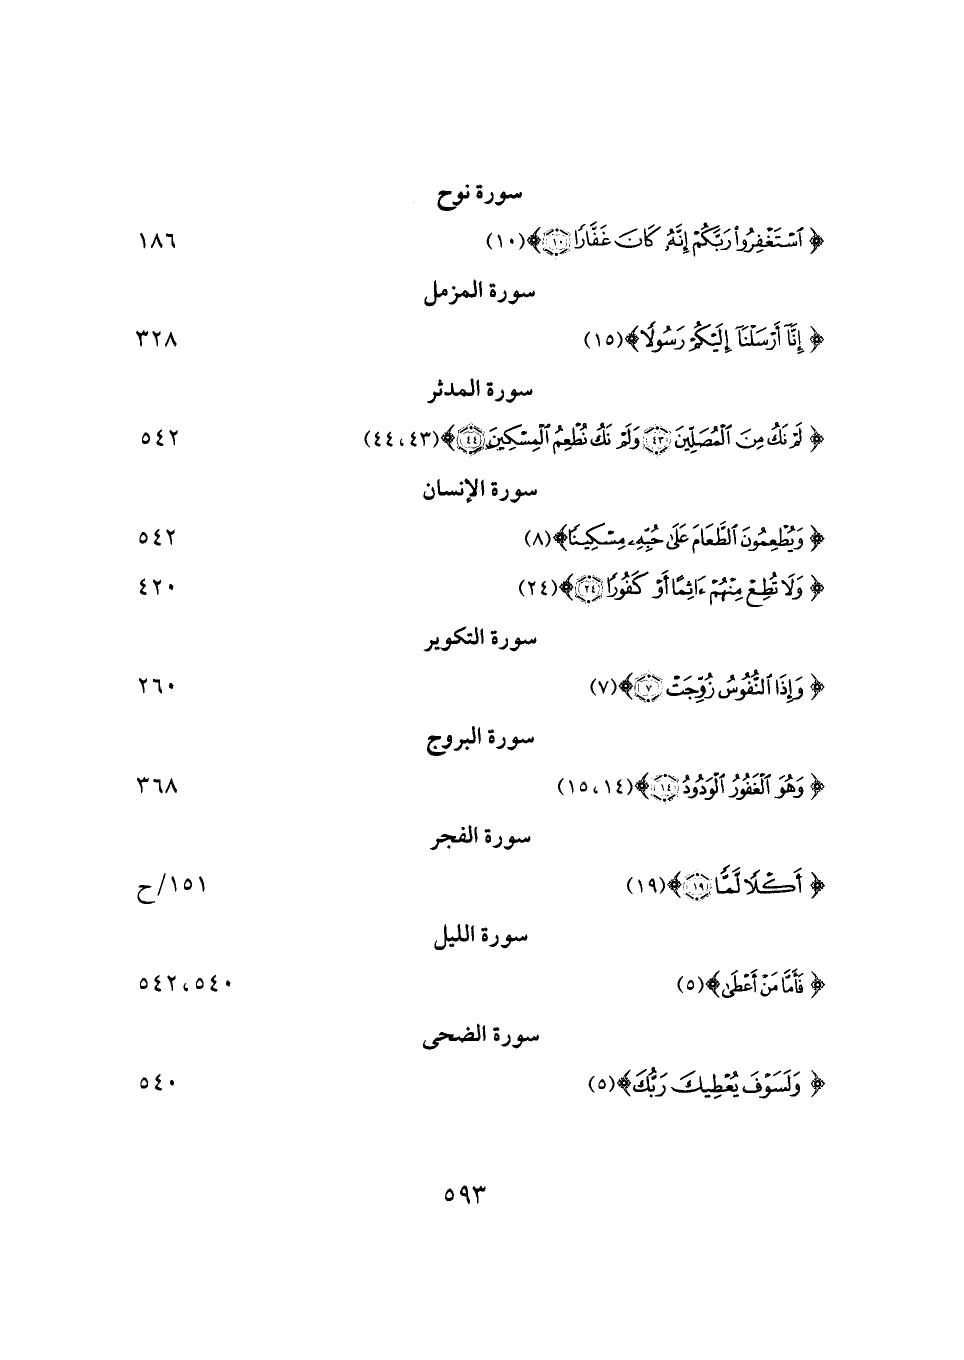 سورة نوح
﴿ ٱسْتَغْفِرُوا۟ رَبَّكُمْ إِنَّهُۥ كَانَ غَفَّارًا ١٠﴾(١٠) ١٨٦
سورة المزمل
﴿ إِنَّآ أَرْسَلْنَآ إِلَيْكُمْ رَسُولًا﴾(١٥) ٣٢٨
سورة المدثر
﴿ لَمْ نَكُ مِنَ ٱلْمُصَلِّينَ ٤٣ وَلَمْ نَكُ نُطْعِمُ ٱلْمِسْكِينَ ٤٤﴾(٤٤،٤٣) ٥٤٢
سورة الإنسان
﴿ وَيُطْعِمُونَ ٱلطَّعَامَ عَلَىٰ حُبِّهِۦ مِسْكِينًا﴾(٨) ٥٤٢
﴿ وَلَا تُطِعْ مِنْهُمْ ءَاثِمًا أَوْ كَفُورًا ٢٤﴾(٢٤) ٤٢٠
سورة التكوير
﴿ وَإِذَا ٱلنُّفُوسُ زُوِّجَتْ ٧﴾(٧) ٢٦٠
سورة البروج
﴿ وَهُوَ ٱلْغَفُورُ ٱلْوَدُودُ ١٤﴾(١٥،١٤) ٣٦٨
سورة الفجر
﴿ أَكْلًا لَّمًّا ١٩﴾(١٩) ١٥١/ح
سورة الليل
﴿ فَأَمَّا مَنْ أَعْطَىٰ﴾(٥) ٥٤٢،٥٤٠
سورة الضحى
﴿ وَلَسَوْفَ يُعْطِيكَ رَبُّكَ﴾(٥) ٥٤٠
٥٩٣